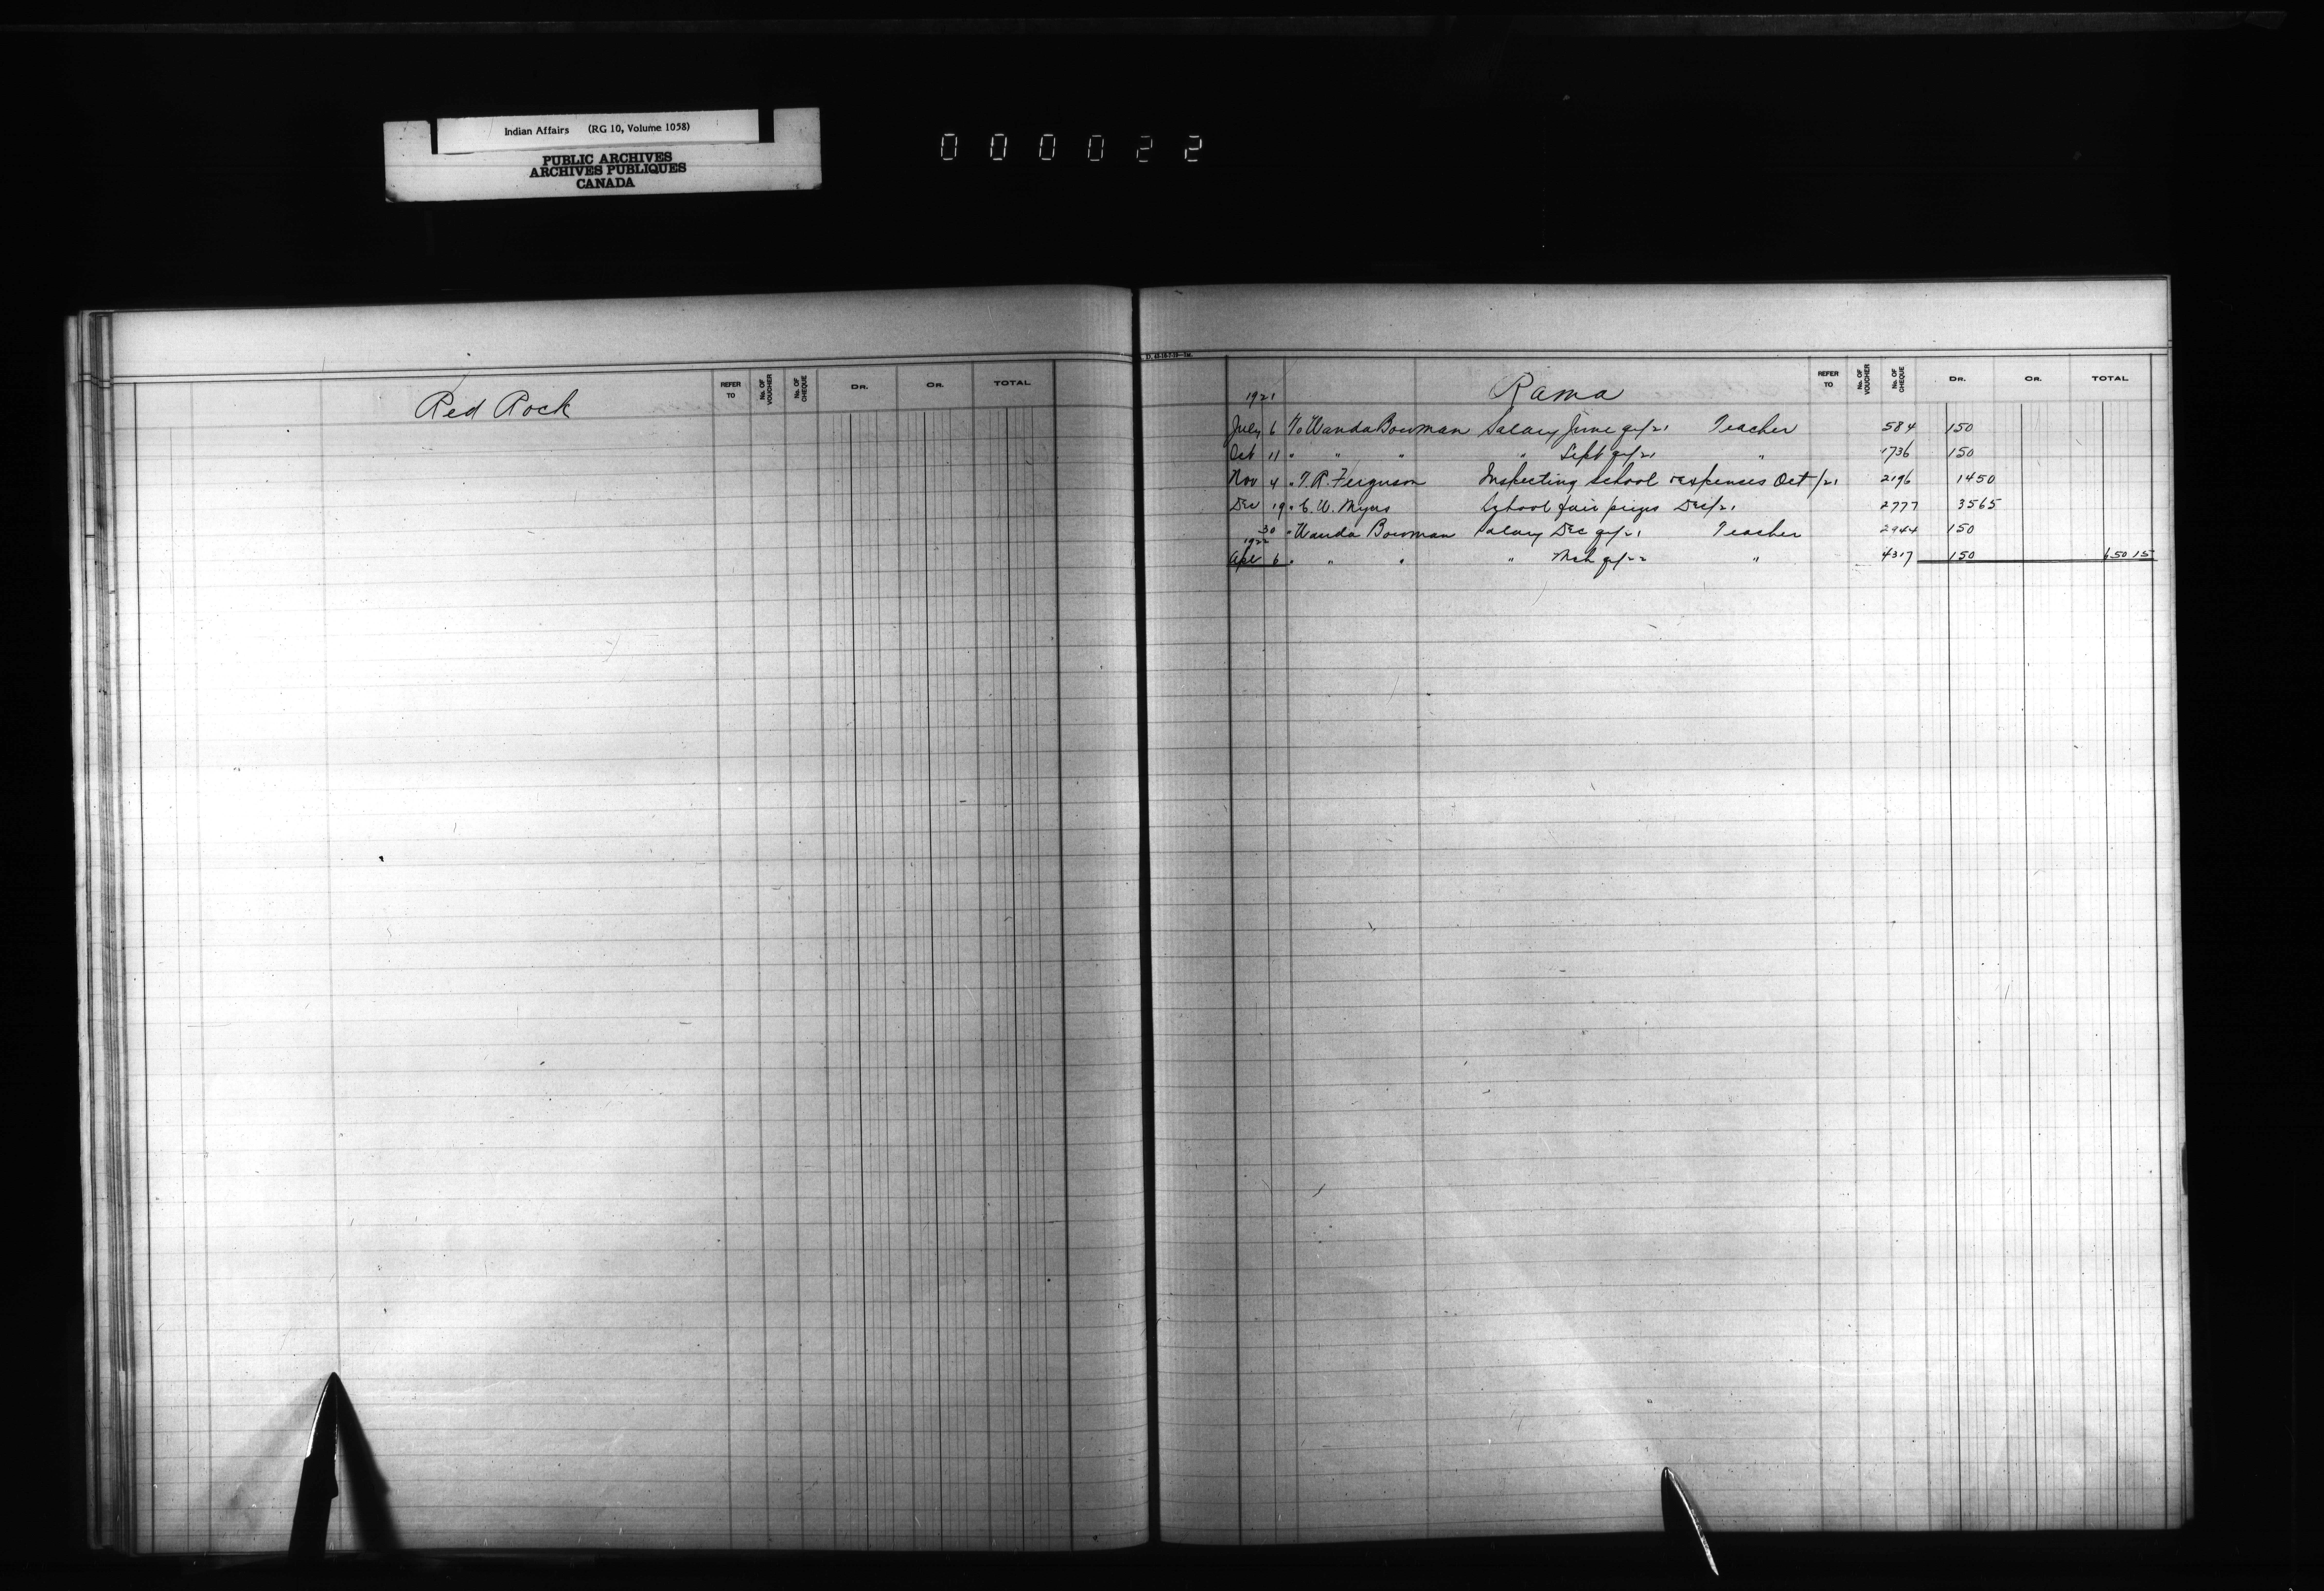 Indian Affairs (RG 10, Volume 1058)
PUBLIC ARCHIVES
ARCHIVES PUBLIQUES
CANADA
000022
Red Rock
REFER TO No. OF VOUCHER No. OF CHEQUE DR. CR. TOTAL
Rama
REFER TO No. OF VOUCHER No. OF CHEQUE DR. CR. TOTAL
1921
July 6 To Wanda Bowman Salary June qr/21 Teacher 584 150
Oct 11 " " " " Sept qr/21 " 1736 150
Nov 4 " T. R. Ferguson Inspecting school & expenses Oct/21 2196 14 50
Dec 19 " C. W. Myers School fair prizes Dec/21 2777 35 65
30 " Wanda Bowman Salary Dec qr/21 Teacher 2944 150
1922
Apl 6 " " " " Mch qr/22 " 4317 150 650 15